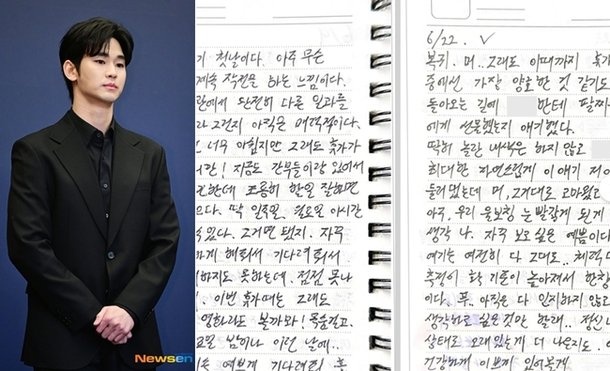 Newsen
기 첫날이다. 아주 무슨
계속 작전을 하는 느낌이다.
완전히 다른 일과를
라 그런지 아직은 매력적이다.
너무 아쉽지만 그래도 휴가가
지만! 지금도 간부들이랑 있어서
조용히 할일 잘하면
딱 일주일, 월요일 이시간
있다. 그거면 됐지. 자꾸
하게 해줘서 기다려줘서
하지도 못하는데. 점점 못나
이번 휴가때는 그래도
영화라도 볼까봐! 폭술하고.
밤이나 이런 날에..
는 예쁘게 기다려줘
6/22.
복귀. 머.. 그래도 이때까지 휴가
중에선 가장 양호한 것 같기도
돌아오는 길에 한테 팔찌
에게 선물했는지 얘기했다.
딱히 놀란 내색은 하지 않고
최대한 자연스럽게 이 얘기 저
들려줬는데 머, 그거대로 고마웠고
아꾸, 우리 울보칭 눈 빨갛게 된게
생각 나. 자꾸 보고싶은 예쁨이다
여기는 여전히 다 그대로.. 체력
측정이 확 기준이 높아져서 한창
이다. 뭐, 아직은 다 인지하지 않고
생각하고 싶은것만 할래.. 정신
상태로 오래있는게 더 나을지도.
건강하게 이쁘게 있어볼게